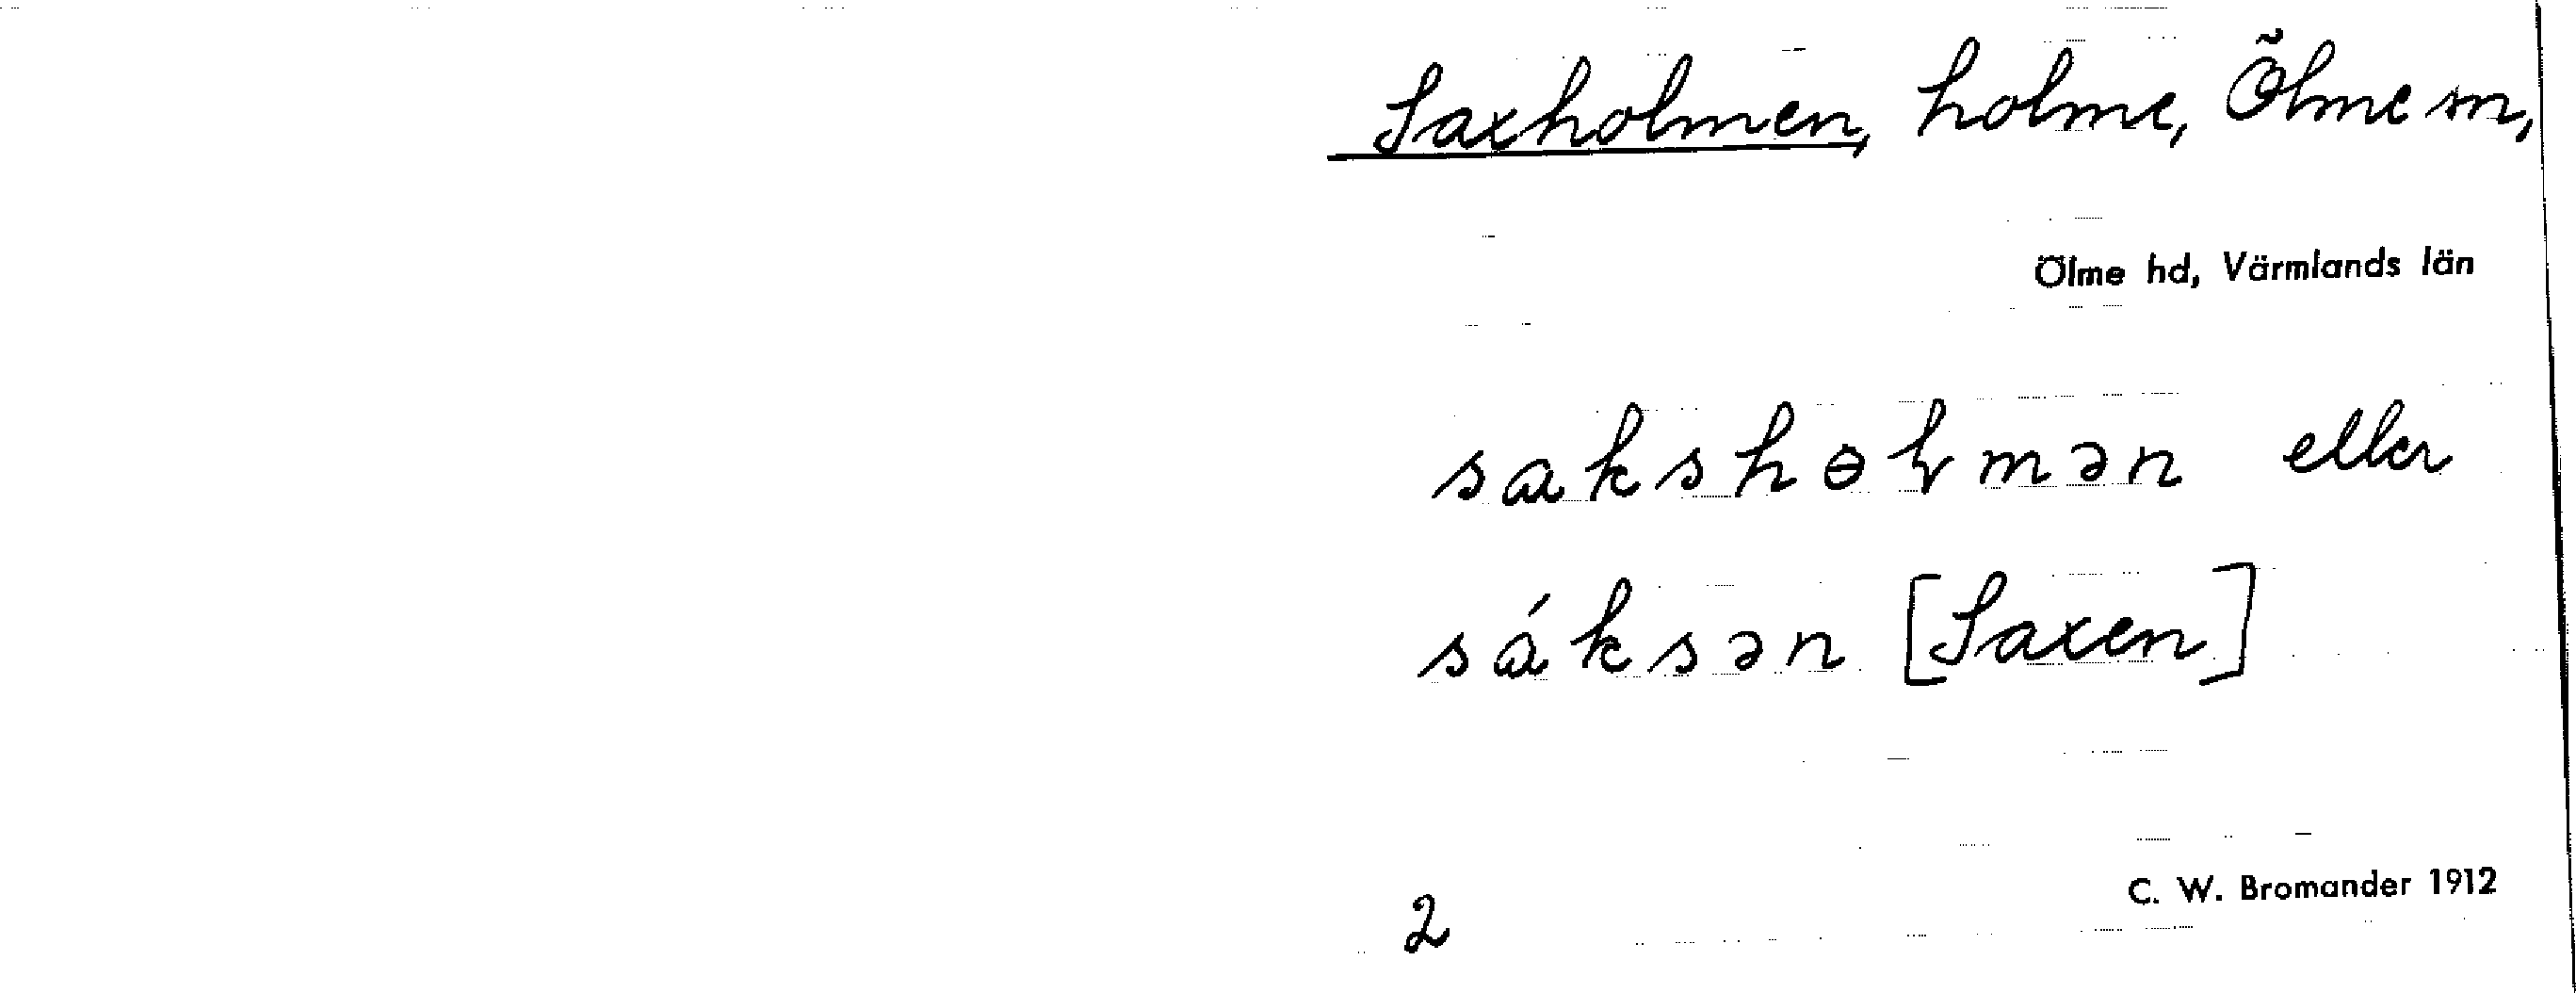 Saxholmen, holme, Ölme sn,
Ölme hd, Värmlands län
sakshɵɽmən eller
sáksən [Saxen]
C. W. Bromander 1912
2